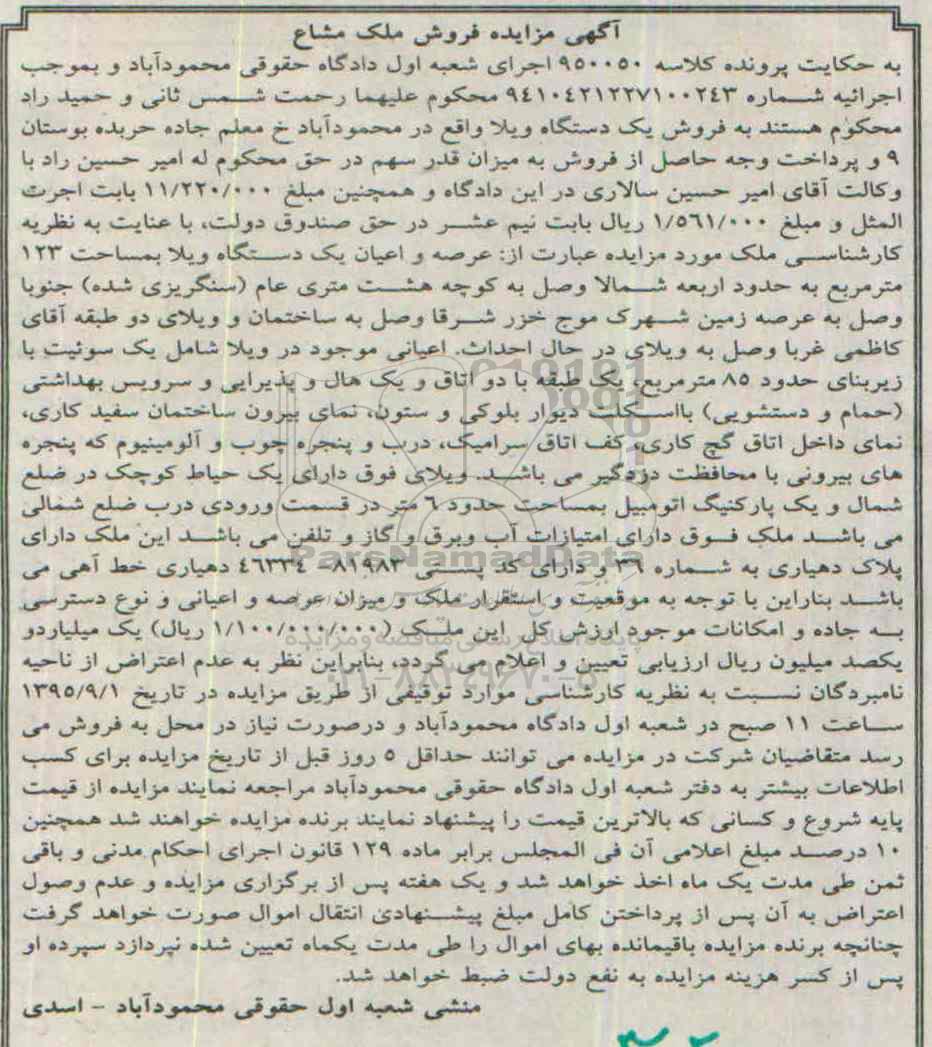 آگهی مزایده فروش ملک مشاع
به حکایت پرونده کلاسه ۹۵۰۰۵۰ اجرای شعبه اول دادگاه حقوقی محمودآباد و بموجب
اجرائیه شماره ۹٤۱۰٤۲۱۲۲۷۱۰۰۲٤۳ محکوم علیهما رحمت شمس ثانی و حمید راد
محکوم هستند به فروش یک دستگاه ویلا واقع در محمودآباد خ معلم جاده حربده بوستان
۹ و پرداخت وجه حاصل از فروش به میزان قدر سهم در حق محکوم له امیر حسین راد با
وکالت آقای امیر حسین سالاری در این دادگاه و همچنین مبلغ ۱۱/۲۲۰/۰۰۰ بابت اجرت
المثل و مبلغ ۱/۵٦۱/۰۰۰ ریال بابت نیم عشر در حق صندوق دولت، با عنایت به نظریه
کارشناسی ملک مورد مزایده عبارت از: عرصه و اعیان یک دستگاه ویلا بمساحت ۱۲۳
مترمربع به حدود اربعه شمالا وصل به کوچه هشت متری عام (سنگریزی شده) جنوبا
وصل به عرصه زمین شهرک موج خزر شرقا وصل به ساختمان و ویلای دو طبقه آقای
کاظمی غربا وصل به ویلای در حال احداث. اعیانی موجود در ویلا شامل یک سوئیت با
زیربنای حدود ۸۵ مترمربع، یک طبقه با دو اتاق و یک هال و پذیرایی و سرویس بهداشتی
(حمام و دستشویی) بااسکلت دیوار بلوکی و ستون، نمای بیرون ساختمان سفید کاری،
نمای داخل اتاق گچ کاری، کف اتاق سرامیک، درب و پنجره چوب و آلومینیوم که پنجره
های بیرونی با محافظت دزدگیر می باشد. ویلای فوق دارای یک حیاط کوچک در ضلع
شمال و یک پارکنیگ اتومبیل بمساحت حدود ٦ متر در قسمت ورودی درب ضلع شمالی
می باشد ملک فوق دارای امتیازات آب وبرق و گاز و تلفن می باشد این ملک دارای
پلاک دهیاری به شماره ۳٦ و دارای کد پستی ۸۱۹۸۳- ٤٦۳۳٤ دهیاری خط آهی می
باشد بناراین با توجه به موقعیت و استقرار ملک و میزان عرصه و اعیانی و نوع دسترسی
به جاده و امکانات موجود ارزش کل این ملک (۱/۱۰۰/۰۰۰/۰۰۰ ریال) یک میلیاردو
یکصد میلیون ریال ارزیابی تعیین و اعلام می گردد، بنابراین نظر به عدم اعتراض از ناحیه
نامبردگان نسبت به نظریه کارشناسی موارد توقیفی از طریق مزایده در تاریخ ۱۳۹۵/۹/۱
ساعت ۱۱ صبح در شعبه اول دادگاه محمودآباد و درصورت نیاز در محل به فروش می
رسد متقاضیان شرکت در مزایده می توانند حداقل ۵ روز قبل از تاریخ مزایده برای کسب
اطلاعات بیشتر به دفتر شعبه اول دادگاه حقوقی محمودآباد مراجعه نمایند مزایده از قیمت
پایه شروع و کسانی که بالاترین قیمت را پیشنهاد نمایند برنده مزایده خواهند شد همچنین
۱۰ درصد مبلغ اعلامی آن فی المجلس برابر ماده ۱۲۹ قانون اجرای احکام مدنی و باقی
ثمن طی مدت یک ماه اخذ خواهد شد و یک هفته پس از برگزاری مزایده و عدم وصول
اعتراض به آن پس از پرداختن کامل مبلغ پیشنهادی انتقال اموال صورت خواهد گرفت
چنانچه برنده مزایده باقیمانده بهای اموال را طی مدت یکماه تعیین شده نپردازد سپرده او
پس از کسر هزینه مزایده به نفع دولت ضبط خواهد شد.
منشی شعبه اول حقوقی محمودآباد - اسدی
ParsNamadData